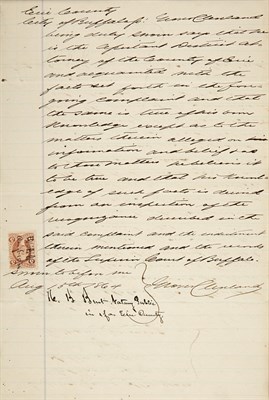 Erie County
City of Buffalo ss: Grover Cleveland
being duly sworn says that he
is the Assistant District At-
torney of the County of Erie
and acquainted with the
facts set forth in the fore-
going Complaint and that
the same is true of his own
knowledge except as to the
matters therein alleged on his
information and belief & as
to those matters he believes it
to be true and that his knowl-
edge of such facts is derived
from an inspection of the
recognizance described in the
said Complaint and the indictment
therein mentioned and the records
of the Superior Court of Buffalo.
Sworn to before me
Aug 1864 Grover Cleveland
Notary Public
in & for Erie County